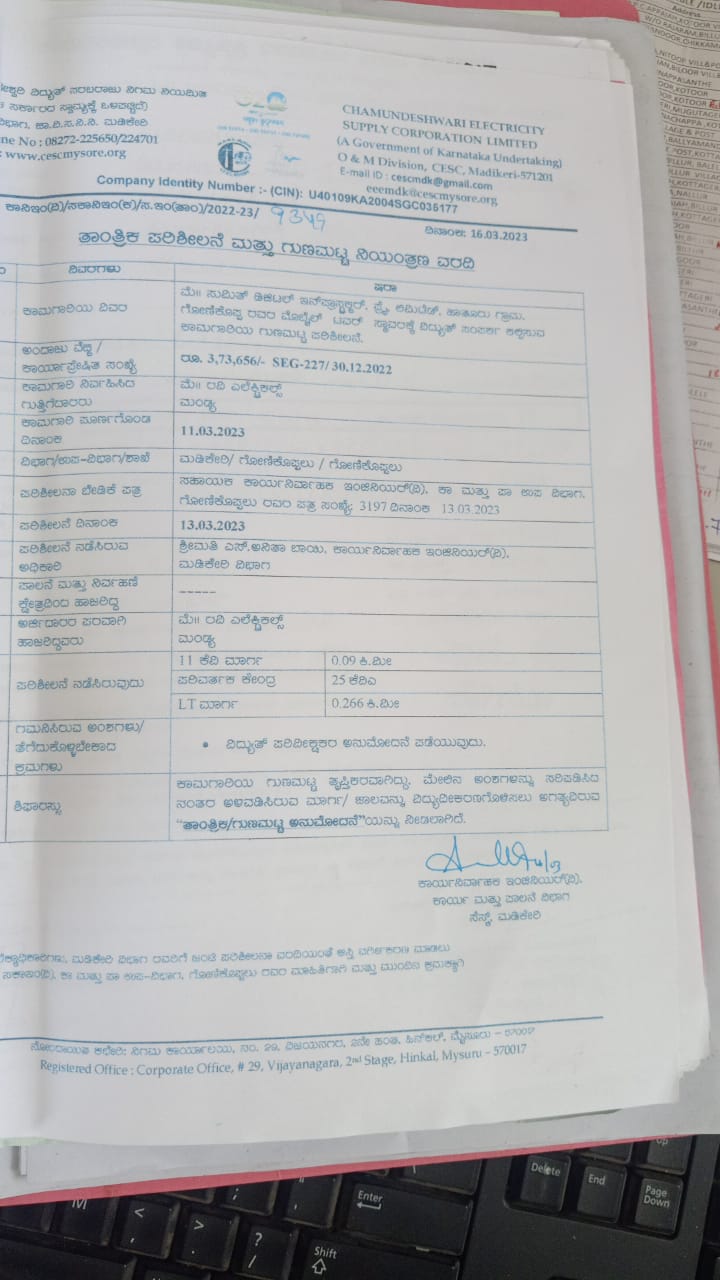 ವಿದ್ಯುತ್ ಸರಬರಾಜು ನಿಗಮ ನಿಯಮಿತ
ಸರ್ಕಾರದ ಸ್ವಾಮ್ಯಕ್ಕೆ ಒಳಪಟ್ಟಿದೆ)
ಚಾ.ವಿ.ಸ.ನಿ.ನಿ. ಮಡಿಕೇರಿ
ne No : 08272-225650/224701
: www.cescmysore.org
CHAMUNDESHWARI ELECTRICITY
SUPPLY CORPORATION LIMITED
(A Government of Karnataka Undertaking)
O & M Division, CESC, Madikeri-571201
E-mail ID : cescmdk@gmail.com
eeemdk@cescmysore.org
Company Identity Number :- (CIN): U40109KA2004SGC035177
ಕಾನಿಇಂ(ವಿ)/ಸಕಾನಿಇಂ(ಕ)/ಸ.ಇಂ(ತಾಂ)/2022-23/ 9349
ದಿನಾಂಕ: 16.03.2023
ತಾಂತ್ರಿಕ ಪರಿಶೀಲನೆ ಮತ್ತು ಗುಣಮಟ್ಟ ನಿಯಂತ್ರಣ ವರದಿ
ವಿವರಗಳು
ಷರಾ
ಕಾಮಗಾರಿಯ ವಿವರ
ಮೆ॥ ಸುಮಿತ್ ಡಿಜಿಟಲ್ ಇನ್‌ಫ್ರಾಸ್ಟ್ರಕ್ಚರ್, ಪ್ರೈ ಲಿಮಿಟೆಡ್, ಹಾತೂರು ಗ್ರಾಮ,
ಗೋಣಿಕೊಪ್ಪ ರವರ ಮೊಬೈಲ್ ಟವರ್ ಸ್ಥಾವರಕ್ಕೆ ವಿದ್ಯುತ್ ಸಂಪರ್ಕ ಕಲ್ಪಿಸುವ
ಕಾಮಗಾರಿಯ ಗುಣಮಟ್ಟ ಪರಿಶೀಲನೆ.
ಅಂದಾಜು ವೆಚ್ಚ /
ಕಾರ್ಯಾಪ್ರೇಷಿತ ಸಂಖ್ಯೆ
ರೂ. 3,73,656/- SEG-227/ 30.12.2022
ಕಾಮಗಾರಿ ನಿರ್ವಹಿಸಿದ
ಗುತ್ತಿಗೆದಾರರು
ಮೆ॥ ರವಿ ಎಲೆಕ್ಟ್ರಿಕಲ್ಸ್
ಮಂಡ್ಯ
ಕಾಮಗಾರಿ ಪೂರ್ಣಗೊಂಡ
ದಿನಾಂಕ
11.03.2023
ವಿಭಾಗ/ಉಪ-ವಿಭಾಗ/ಶಾಖೆ
ಮಡಿಕೇರಿ/ ಗೋಣಿಕೊಪ್ಪಲು / ಗೋಣಿಕೊಪ್ಪಲು
ಪರಿಶೀಲನಾ ಬೇಡಿಕೆ ಪತ್ರ
ಸಹಾಯಕ ಕಾರ್ಯನಿರ್ವಾಹಕ ಇಂಜಿನಿಯರ್(ವಿ), ಕಾ ಮತ್ತು ಪಾ ಉಪ ವಿಭಾಗ,
ಗೋಣಿಕೊಪ್ಪಲು ರವರ ಪತ್ರ ಸಂಖ್ಯೆ: 3197 ದಿನಾಂಕ 13.03.2023
ಪರಿಶೀಲನೆ ದಿನಾಂಕ
13.03.2023
ಪರಿಶೀಲನೆ ನಡೆಸಿರುವ
ಅಧಿಕಾರಿ
ಶ್ರೀಮತಿ ಎಸ್.ಅನಿತಾ ಬಾಯಿ, ಕಾರ್ಯನಿರ್ವಾಹಕ ಇಂಜಿನಿಯರ್(ವಿ),
ಮಡಿಕೇರಿ ವಿಭಾಗ
ಪಾಲನೆ ಮತ್ತು ನಿರ್ವಹಣೆ
ಕ್ಷೇತ್ರದಿಂದ ಹಾಜರಿದ್ದ
-----
ಅರ್ಜಿದಾರರ ಪರವಾಗಿ
ಹಾಜರಿದ್ದವರು
ಮೆ॥ ರವಿ ಎಲೆಕ್ಟ್ರಿಕಲ್ಸ್
ಮಂಡ್ಯ
ಪರಿಶೀಲನೆ ನಡೆಸಿರುವುದು
11 ಕೆವಿ ಮಾರ್ಗ
0.09 ಕಿ.ಮೀ
ಪರಿವರ್ತಕ ಕೇಂದ್ರ
25 ಕೆವಿಎ
LT ಮಾರ್ಗ
0.266 ಕಿ.ಮೀ
ಗಮನಿಸಿರುವ ಅಂಶಗಳು/
ತೆಗೆದುಕೊಳ್ಳಬೇಕಾದ
ಕ್ರಮಗಳು
• ವಿದ್ಯುತ್ ಪರಿವೀಕ್ಷಕರ ಅನುಮೋದನೆ ಪಡೆಯುವುದು.
ಶಿಫಾರಸ್ಸು
ಕಾಮಗಾರಿಯ ಗುಣಮಟ್ಟ ತೃಪ್ತಿಕರವಾಗಿದ್ದು, ಮೇಲಿನ ಅಂಶಗಳನ್ನು ಸರಿಪಡಿಸಿದ
ನಂತರ ಅಳವಡಿಸಿರುವ ಮಾರ್ಗ/ ಜಾಲವನ್ನು ವಿದ್ಯುದೀಕರಣಗೊಳಿಸಲು ಅಗತ್ಯವಿರುವ
"ತಾಂತ್ರಿಕ/ಗುಣಮಟ್ಟ ಅನುಮೋದನೆ"ಯನ್ನು ನೀಡಲಾಗಿದೆ.
ಕಾರ್ಯನಿರ್ವಾಹಕ ಇಂಜಿನಿಯರ್(ವಿ),
ಕಾರ್ಯ ಮತ್ತು ಪಾಲನೆ ವಿಭಾಗ
ಸೆಸ್ಕ್, ಮಡಿಕೇರಿ
ಮಡಿಕೇರಿ ವಿಭಾಗ ರವರಿಗೆ ಜಂಟಿ ಪರಿಶೀಲನಾ ವರದಿಯಂತೆ ಆಸ್ತಿ ವರ್ಗೀಕರಣ ಮಾಡಲು
ಸಕಾನಿಇಂ(ವಿ), ಕಾ ಮತ್ತು ಪಾ ಉಪ-ವಿಭಾಗ, ಗೋಣಿಕೊಪ್ಪಲು ರವರ ಮಾಹಿತಿಗಾಗಿ ಮತ್ತು ಮುಂದಿನ ಕ್ರಮಕ್ಕಾಗಿ
ನೋಂದಾಯಿತ ಕಛೇರಿ: ನಿಗಮ ಕಾರ್ಯಾಲಯ, ನಂ. 29, ವಿಜಯನಗರ, 2ನೇ ಹಂತ, ಹಿನಕಲ್, ಮೈಸೂರು – 570017
Registered Office : Corporate Office, # 29, Vijayanagara, 2nd Stage, Hinkal, Mysuru – 570017
Delete
End
Page
Down
Enter
Shift
M
<
>
?
/